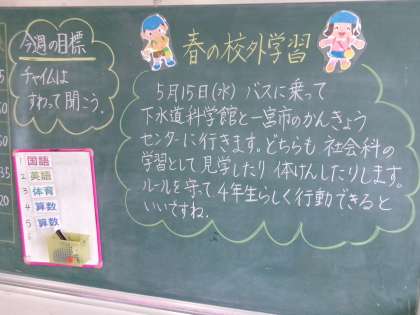 今週の目標
チャイムは
すわって聞こう。
春の校外学習
5月15日(水) バスに乗って
下水道科学館と一宮市のかんきょう
センターに行きます。どちらも 社会科の
学習として 見学したり 体けんしたりします。
ルールを守って 4年生らしく行動できると
いいですね.
1 国語
2 英語
3 体育
4 算数
5 算数
5
50
35
20